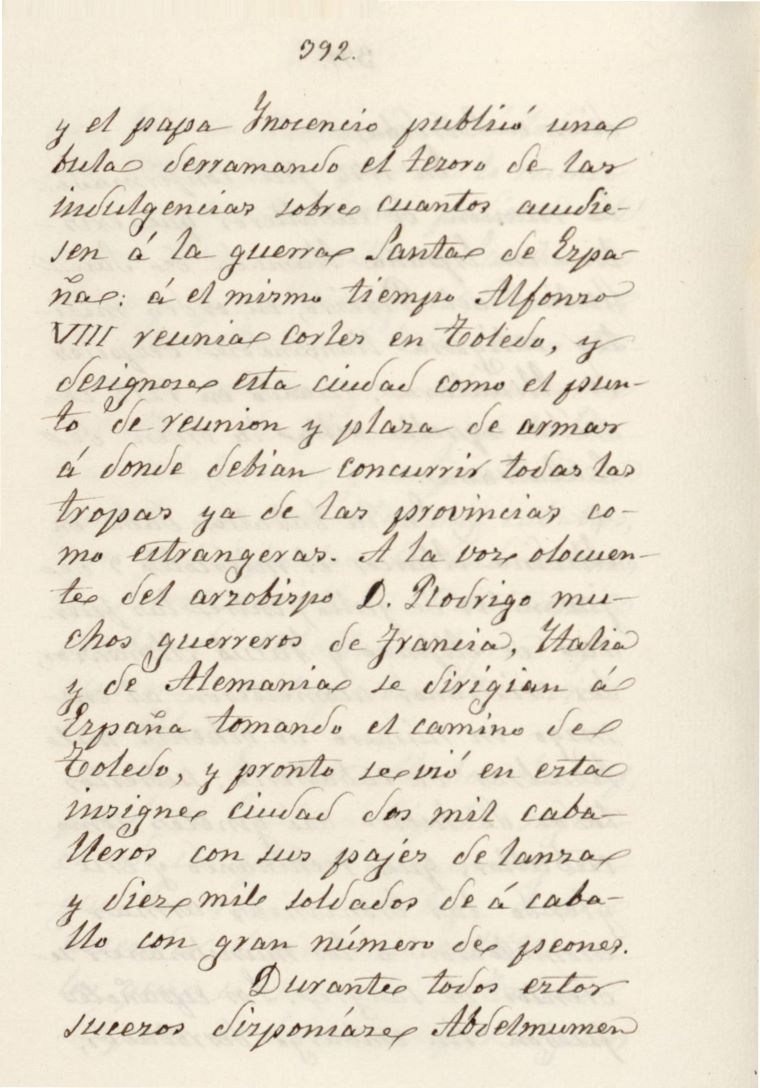 392.
y el papa Inocencio publicó una
bula derramando el tezoro de las
indulgencias sobre cuantos acudie-
sen á la guerra Santa de Espa-
ña: á el mismo tiempo Alfonso
VIII reunia cortes en Toledo, y
designose esta ciudad como el pun-
to de reunion y plaza de armas
á donde debian concurrir todas las
tropas ya de las provincias co-
mo estrangeras. A la voz olocuen-
te del arzobispo D. Rodrigo mu-
chos guerreros de Francia, Italia
y de Alemania se dirigian á
España tomando el camino de
Toledo, y pronto se vió en esta
insigne ciudad dos mil caba-
lleros con sus pajes de lanza
y diez mil soldados de á caba-
llo con gran número de peones.
Durante todos estos
sucezos disponíase Abdelmumen